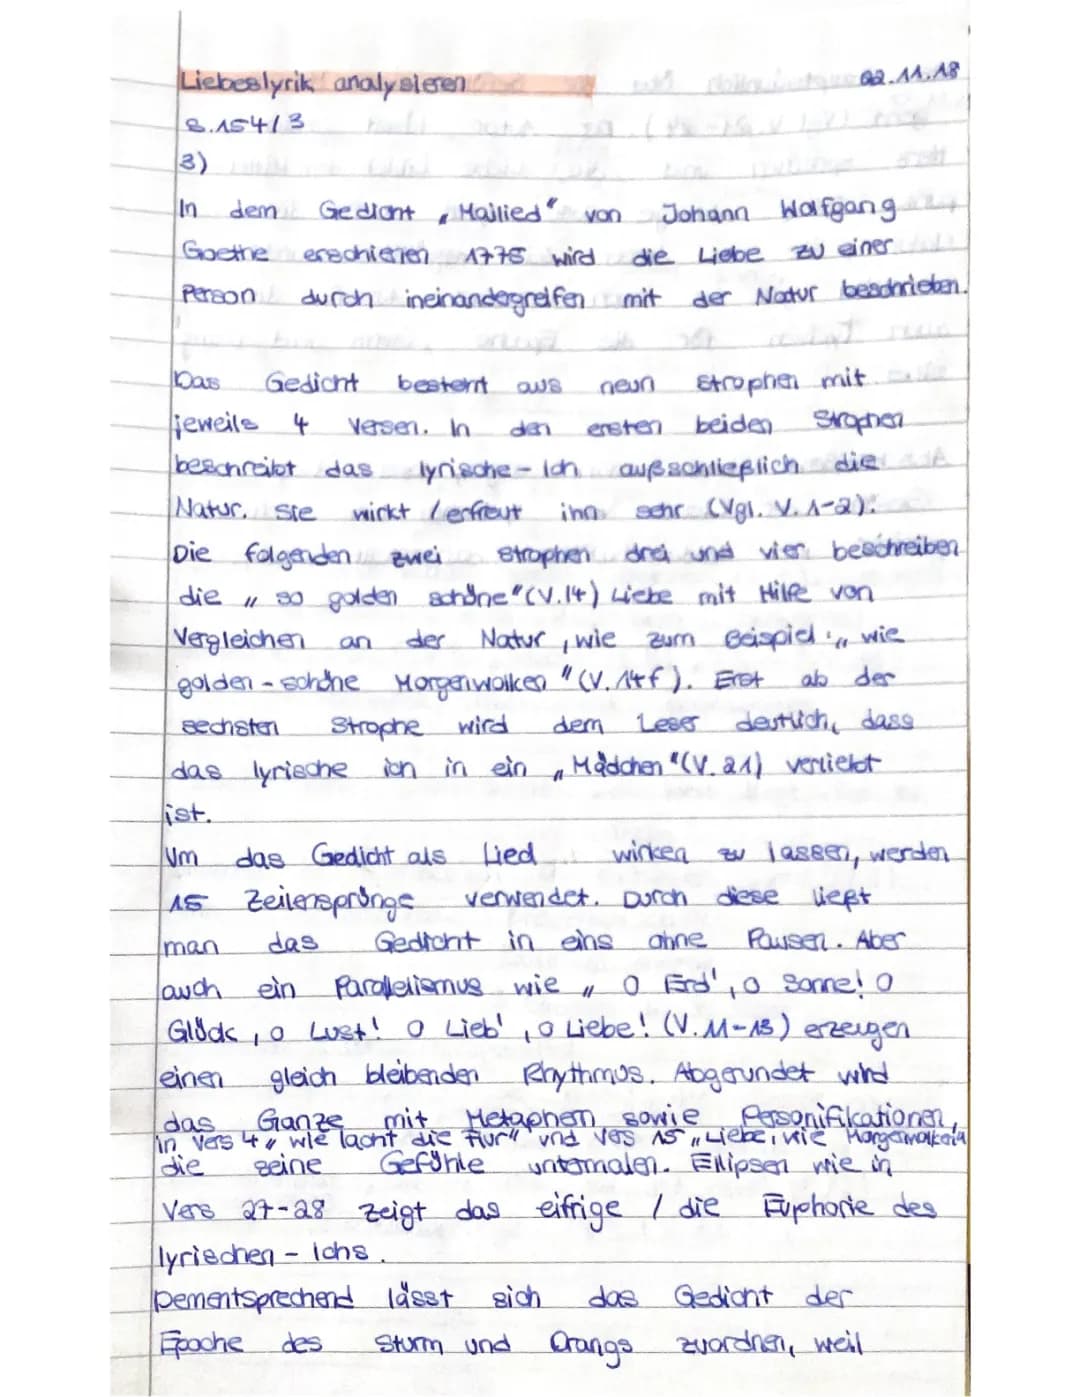 Liebeslyrik analysieren 02.11.18
S.154/3
3)
In dem Gedicht „Mailied" von Johann Wolfgang
Goethe erschienen 1775 wird die Liebe zu einer
Person durch ineinandergreifen mit der Natur beschrieben.
Das Gedicht besteht aus neun Strophen mit
jeweils 4 Versen. In den ersten beiden Strophen
beschreibt das lyrische-Ich außschließlich die
Natur. Sie wirkt / erfreut ihn sehr (Vgl. V. 1-2).
Die folgenden zwei Strophen drei und vier beschreiben
die „so golden schöne" (V.14) Liebe mit Hilfe von
Vergleichen an der Natur, wie zum Beispiel: „wie
golden-schöne Morgenwolken" (V. 14f). Erst ab der
sechsten Strophe wird dem Leser deutlich, dass
das lyrische ich in ein „Mädchen" (V. 21) verliebt
ist.
Um das Gedicht als Lied wirken zu lassen, werden
15 Zeilensprünge verwendet. Durch diese ließt
man das Gedicht in eins ohne Pausen. Aber
auch ein Parallelismus wie „O Erd', o Sonne! O
Glück, o Lust! O Lieb', o Liebe! (V. 11-13) erzeugen
einen gleich bleibenden Rhythmus. Abgerundet wird
das Ganze mit Metaphern sowie Personifikationen,
in Vers 4 „wie lacht die Flur" und Vers 15 „Liebe, wie Morgenwolken
die seine Gefühle untermalen. Ellipsen wie in
Vers 27-28 zeigt das eifrige / die Euphorie des
lyrischen-Ichs.
Dementsprechend lässt sich das Gedicht der
Epoche des Sturm und Drangs zuordnen, weil